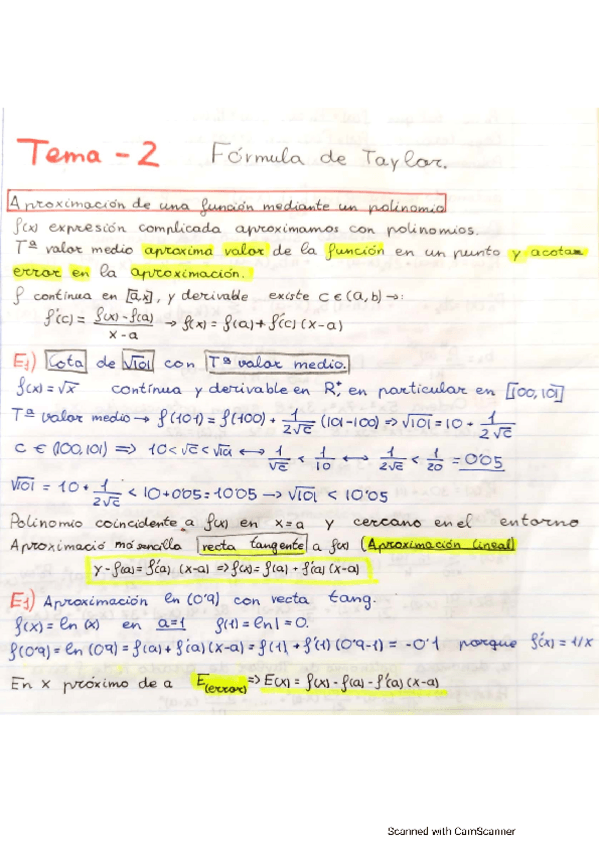 Tema - 2 Fórmula de Taylor.
Aproximación de una función mediante un polinomio
f(x) expresión complicada aproximamos con polinomios.
Tª valor medio aproxima valor de la función en un punto y acotar
error en la aproximación.
f continua en [a,x], y derivable existe c ∈ (a,b) →:
f'(c) = (f(x) - f(a))/(x-a) → f(x) = f(a) + f'(c) (x-a)
E1) Cota de √101 con Tª valor medio.
f(x) = √x continua y derivable en R⁺, en particular en [100, 101]
Tª valor medio → f(101) = f(100) + 1/(2√c) (101-100) ⇒ √101 = 10 + 1/(2√c)
c ∈ (100,101) ⇒ 10 < √c < √101 ↔ 1/√c < 1/10 ↔ 1/(2√c) < 1/20 = 0'05
√101 = 10 + 1/(2√c) < 10 + 0'05 = 10'05 → √101 < 10'05
Polinomio coincidente a f(x) en x=a y cercano en el entorno
Aproximació más sencilla recta tangente a f(x) (Aproximación lineal)
y - f(a) = f'(a) (x-a) ⇒ f(x) = f(a) + f'(a) (x-a)
E1) Aproximación ln (0'9) con recta tang.
f(x) = ln (x) en a=1 f(1) = ln 1 = 0.
f(0'9) = ln (0'9) = f(a) + f'(a) (x-a) = f(1) + f'(1) (0'9-1) = -0'1 porque f'(x) = 1/x
En x próximo de a E(error) ⇒ E(x) = f(x) - f(a) - f'(a) (x-a)
Scanned with CamScanner